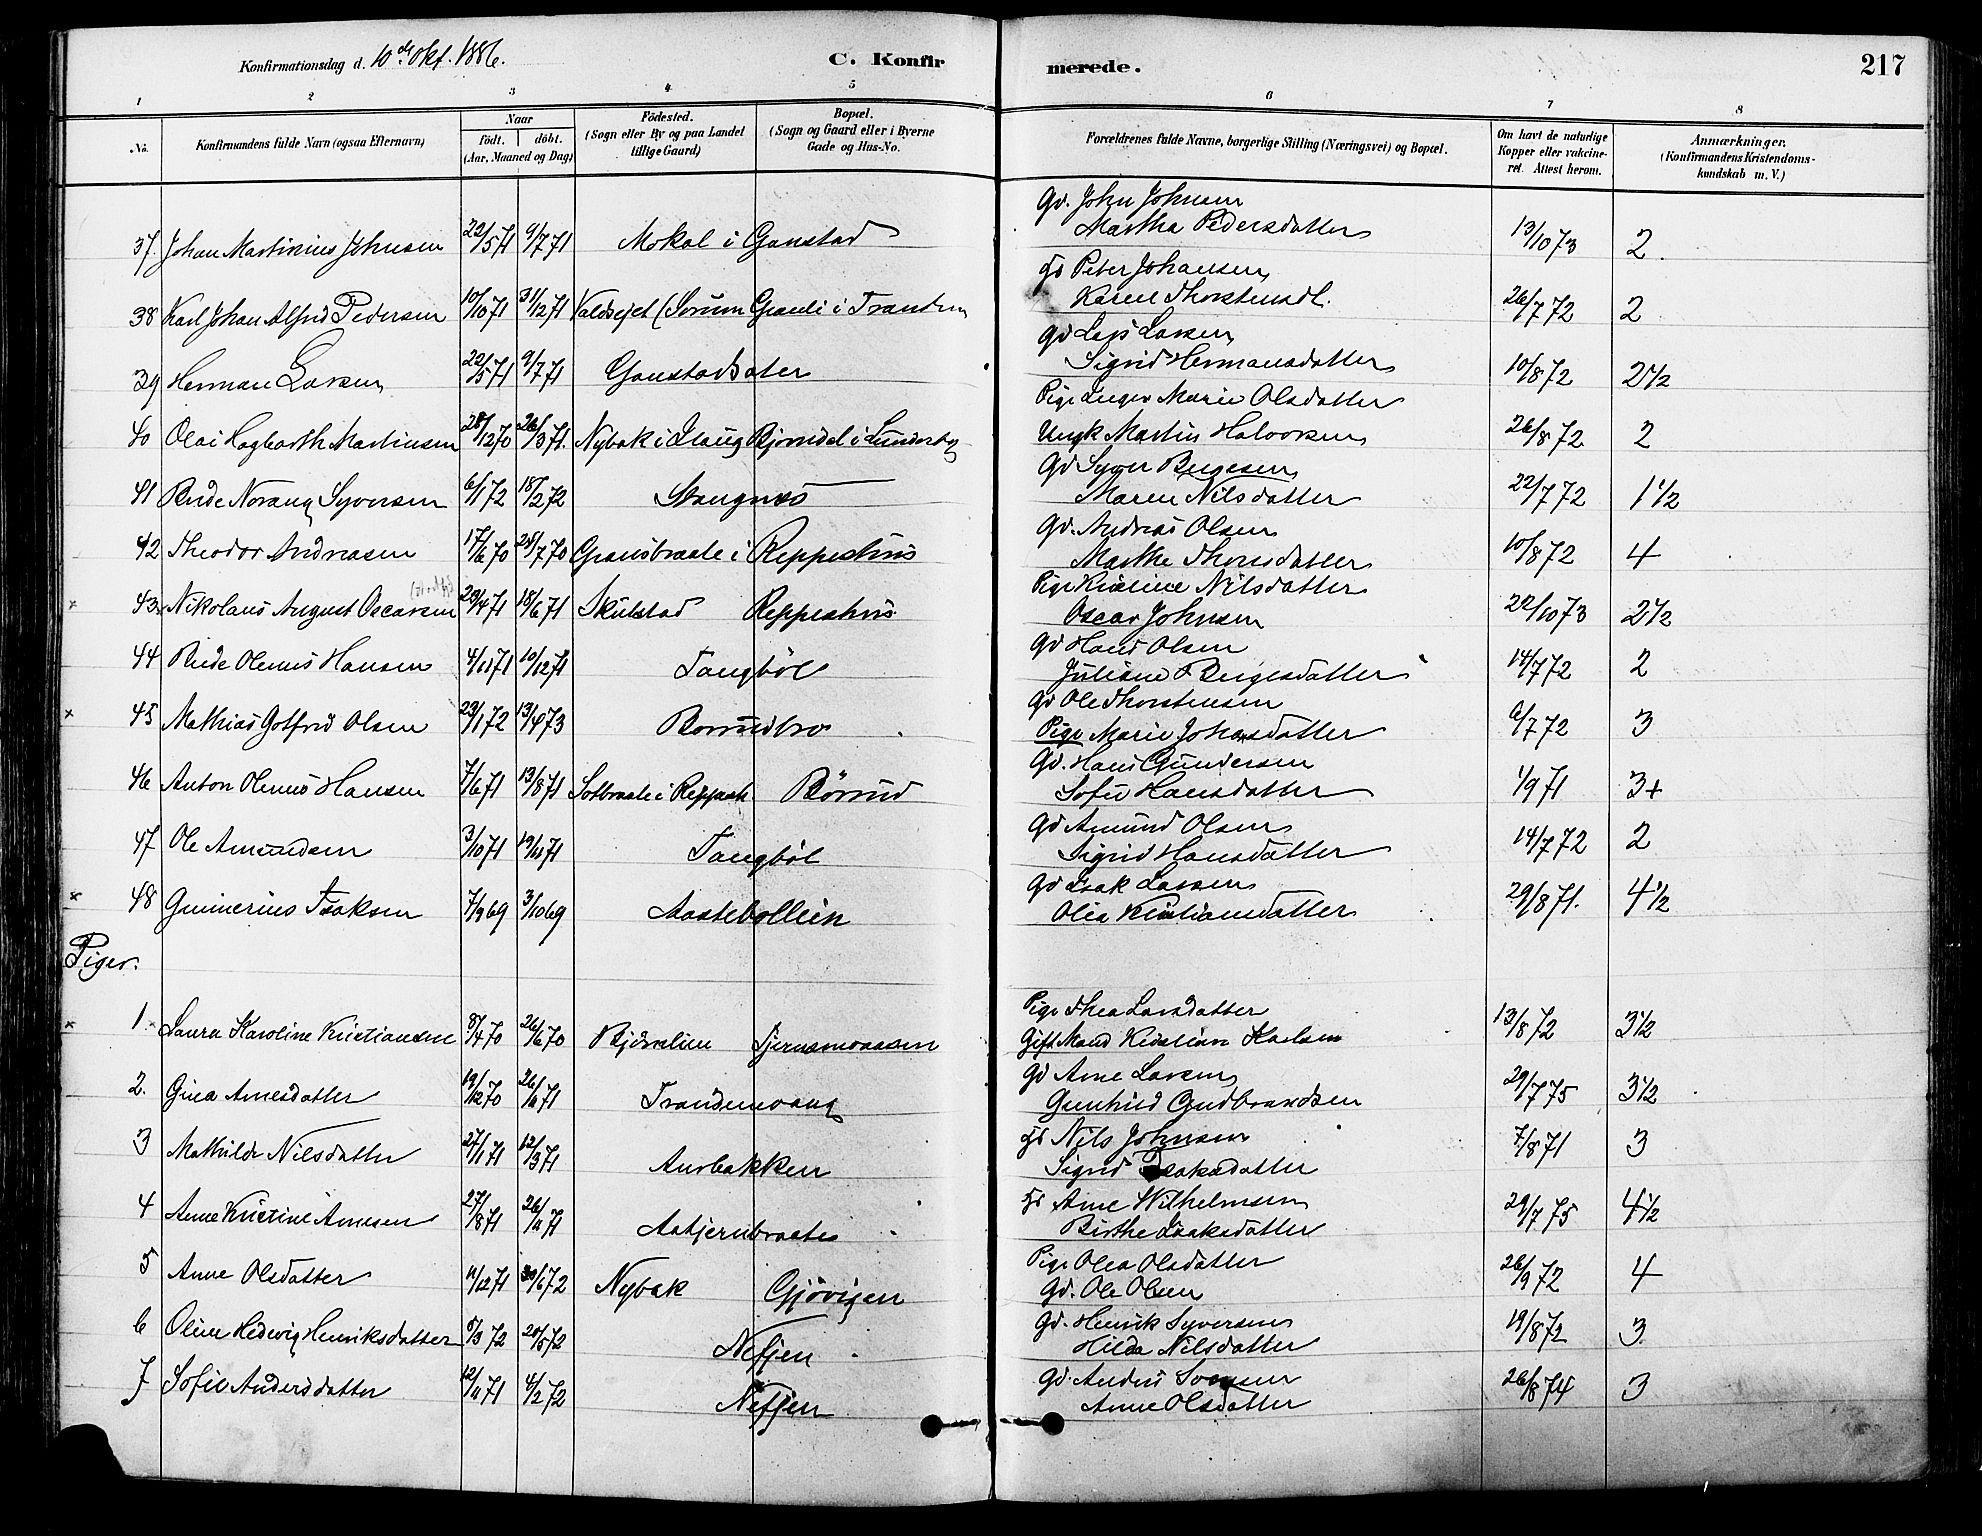 Konfirmationsdag d. 10de Okt. 1886.
C. Konfirmerede.
217
1 2 3 4 5 6 7 8
No. Konfirmandens fulde Navn (ogsaa Efternavn) Naar født. døbt. (Aar, Maaned og Dag) Födested. (Sogn eller By og paa Landet tillige Gaard) Bopæl. (Sogn og Gaard eller i Byerne Gade og Hus-No. Forældrenes fulde Navne, borgerlige Stilling (Næringsvei) og Bopæl. Om havt de naturlige Kopper eller vakcineret. Attest herom. Anmærkninger. (Konfirmandens Kristendomskundskab m. V.)
37. Johan Martinius Johnsen 22/5 71 9/7 71 Mokal i Ganstad Gd. John Johnsen
Martha Pedersdatter 13/10 73 2.
38 Karl Johan Alfred Pedersen 10/10 71 31/12 71 Valdsejet (Sorum Granli i Peter Johansen
Karen Thorstensdt. 26/7 72 2
39 Herman Larsen 22/5 71 9/7 71 Ganstadsater Gd Lars Larsen
Sigrid Hermansdatter 10/8 72 2 1/2
40 Olai Hagbarth Martinsen 28/12 70 26/3 71. Nybak i Bjørndal i Pige Inger Marie Olsdatter
Ungk Martin Halvorsen 26/8 72 2
41 Norang Syversen 6/1 72 18/2 72 Stangnæs Gd Syver Birgesen
Maren Nilsdatter 22/7 72 1 1/2
42 Theodor Andreasen 17/6 70 28/7 70 Gransbraate i Reppeshus Gd. Andreas Olsen
Marthe Thorsdatter 10/8 72 4
43 Nikolaus August Oscarsen 23/4 71 18/6 71 Skulstad Reppeshus Pige Kristine Nilsdatter
Oscar Johnsen 22/10 73 2 1/2
44 Olenus Hansen 4/11 71 10/12 71 Tangbøl Gd Hans Olsen
Juliane Birgesdatter 14/7 72 2
45 Mathias Gotfred Olsen 23/1 72 13/4 73 Borrudbro Gd Ole Thorstensen
Pige Marie Johansdatter 6/7 72 3
46 Anton Olenus Hansen 7/6 71 13/8 71 Solbraate i Reppesh Børrud Gd. Hans Gundersen
Sofie Hansdatter 1/9 71 3+
47 Ole Amundsen 3/10 71 19/11 71 Tangbøl Gd Amund Olsen
Sigrid Hansdatter 14/7 72 2
48 Gunnerius Isaksen 7/9 69 3/10 69 Gd Isak Larsen
Olea Kristiansdatter 29/8 71. 4 1/2
Piger.
1. Laura Karoline Kristiansen 8/4 70 26/6 70 Bjørnelien Tjernsmoaasen Pige Thea Larsdatter
Gift Mand Kristian Karlsen 13/8 72 3 1/2
2. Gina Arnesdatter 19/12 70 71 Trandemoang Gd Arne Larsen
Gunhild Gudbrandsen 29/7 75 3 1/2
3 Mathilde Nilsdatter 27/1 71 12/3 71 Aurbakken Nils Johnsen
Sigrid Isaksdatter 7/8 71 3
4 Anne Kristine Arnesen 27/8 71 26/11 71 Aatjernbraaten Arne Wilhelmsen
Birthe Isaksdatter 29/7 75 4 1/2
5 Anne Olsdatter 11/12 71 30/6 72 Nybak Gjøvigen Pige Olea Olsdatter
Gd. Ole Olsen 26/9 72 4
6 Oline Hedevig Henriksdatter 5/3 72 20/5 72 Nefjen Gd. Henrik Syversen
Hilda Nilsdatter 19/8 72 3
7 Sofie Andersdatter 12/11 71 4/2 72 Nefjen Gd. Anders
Anne Olsdatter 26/8 74 3